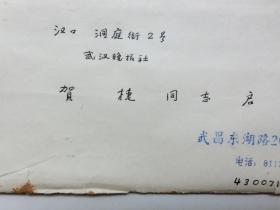 汉口 洞庭街2号
武汉晚报社
贺 捷 同志 启
武昌东湖路2
电话：811
430071